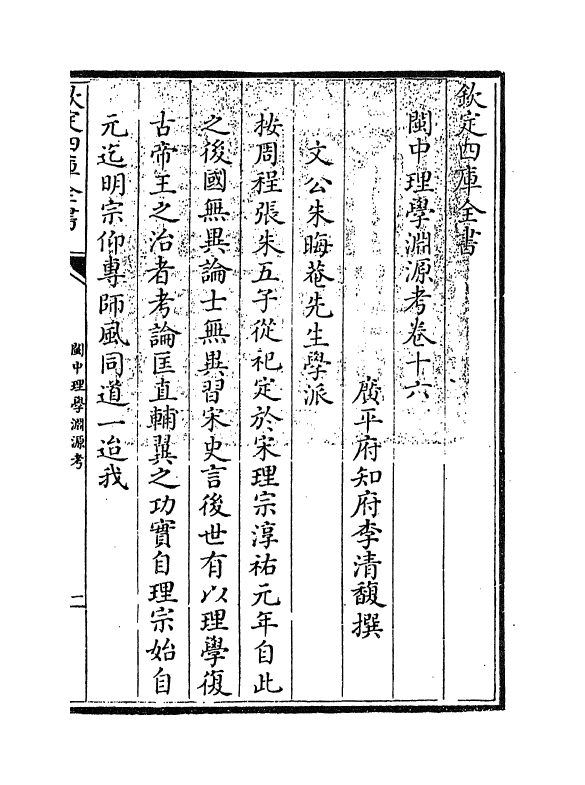 欽定四庫全書
閩中理學淵源考卷十六
廣平府知府李清馥撰
文公朱晦菴先生學派
按周程張朱五子從祀定於宋理宗淳祐元年自此
之後國無異論士無異習宋史言後世有以理學復
古帝王之治者考論匡直輔翼之功實自理宗始自
元迄明宗仰專師風同道一迨我
欽定四庫全書
閩中理學淵源考